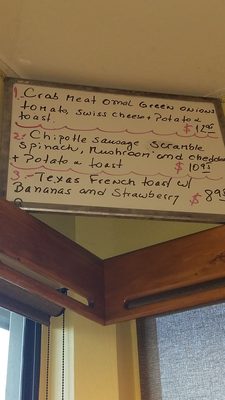 1. Crab Meat omel Green onions
tomato, swiss cheese + Potato &
toast. $12.95
2.- Chipotle sausage scramble
spinach, mushroom and cheddar
+ Potato & toast $10.95
3.- Texas French toast w/
Bananas and Strawberry $8.95